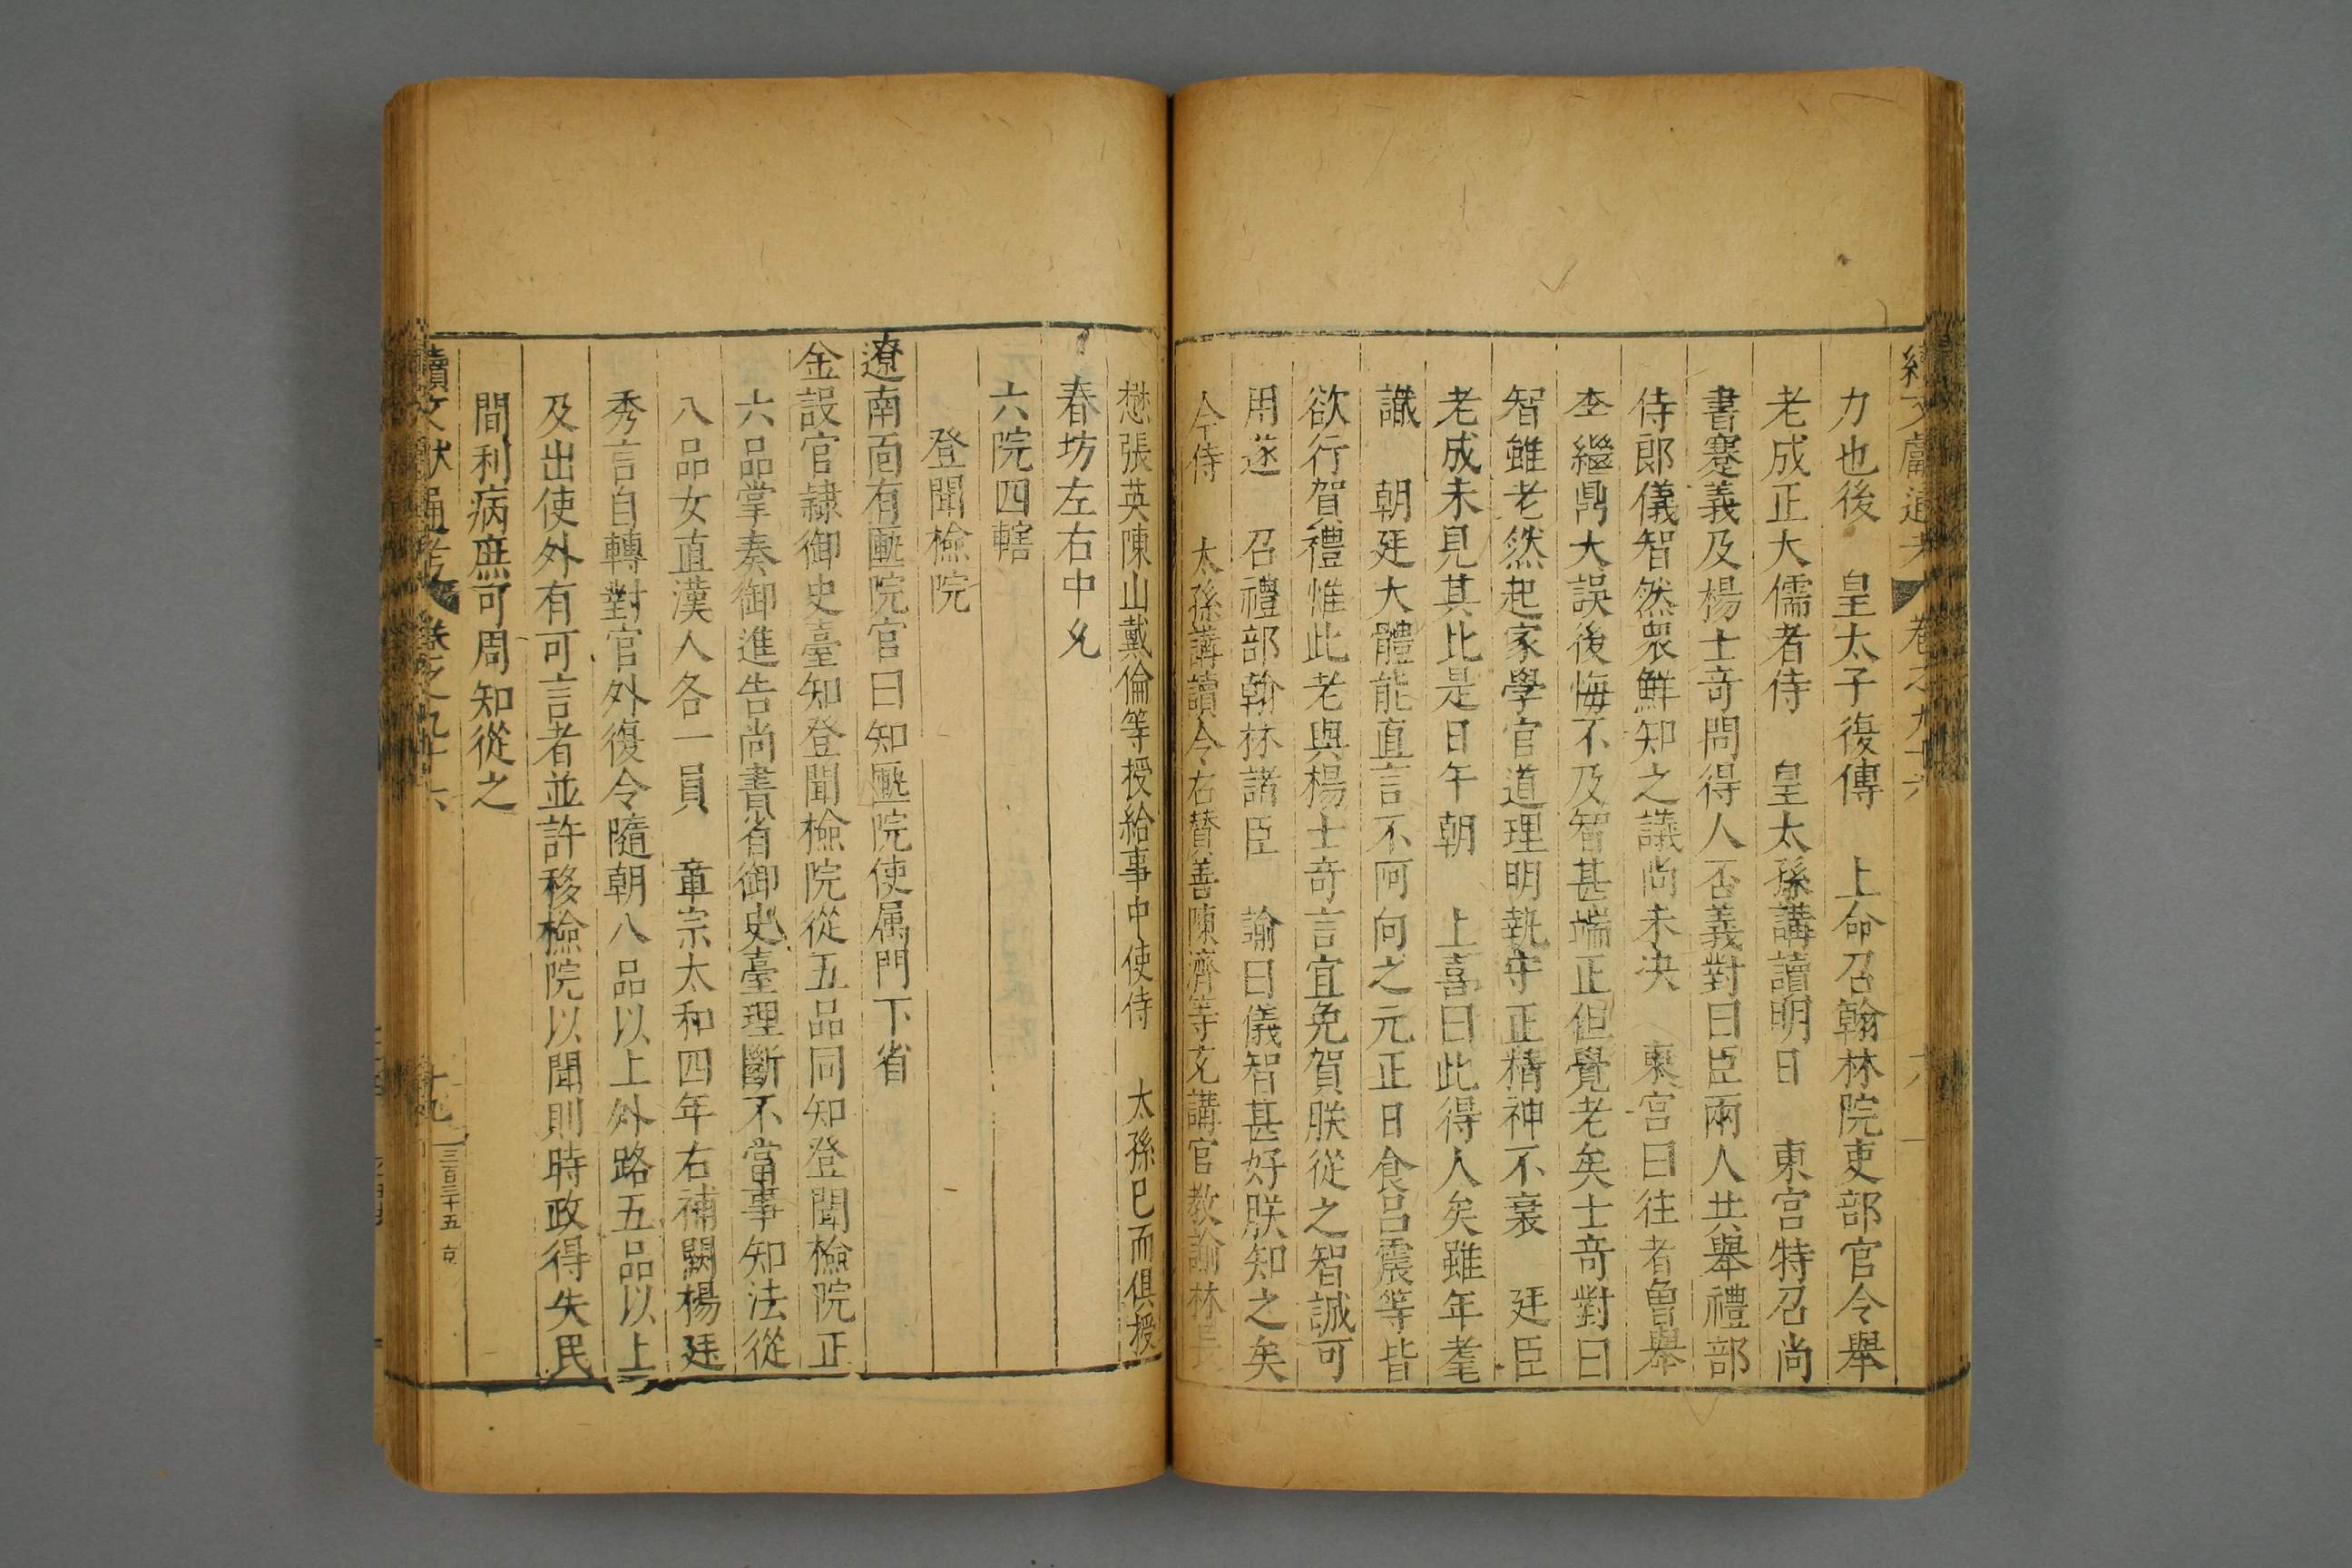 續文獻通考 卷之九十六
力也後 皇太子復傳 上命召翰林院吏部官令舉
老成正大儒者侍 皇太孫講讀明日 東宮特召尚
書蹇義及楊士奇問得人否義對曰臣兩人共舉禮部
侍郎儀智然衆鮮知之議尚未決 東宮曰往者魯舉
李繼鼎大誤後悔不及智甚端正但覺老矣士奇對曰
智雖老然起家學官道理明執守正精神不衰 廷臣
老成未見其比是日午朝 上喜曰此得人矣雖年耄
識 朝廷大體能直言不阿向之元正日食呂震等皆
欲行賀禮惟此老與楊士奇言宜免賀朕從之智誠可
用遂 召禮部翰林諸臣 諭曰儀智甚好朕知之矣
今侍 太孫講讀令右贊善陳濟等充講官教諭林長
懋張英陳山戴倫等授給事中使侍 太孫已而俱授
春坊左右中允
六院四轄
登聞檢院
遼南面有匭院官曰知匭院使属門下省
金設官隸御史臺知登聞檢院從五品同知登聞檢院正
六品掌奏御進告尚書省御史臺理斷不當事知法從
八品女直漢人各一員 章宗太和四年右補闕楊廷
秀言自轉對官外復令隨朝八品以上外路五品以上
及出使外有可言者並許移檢院以聞則時政得失民
間利病庶可周知從之
續文獻通考 卷之九十六 十九 三百三十五 京